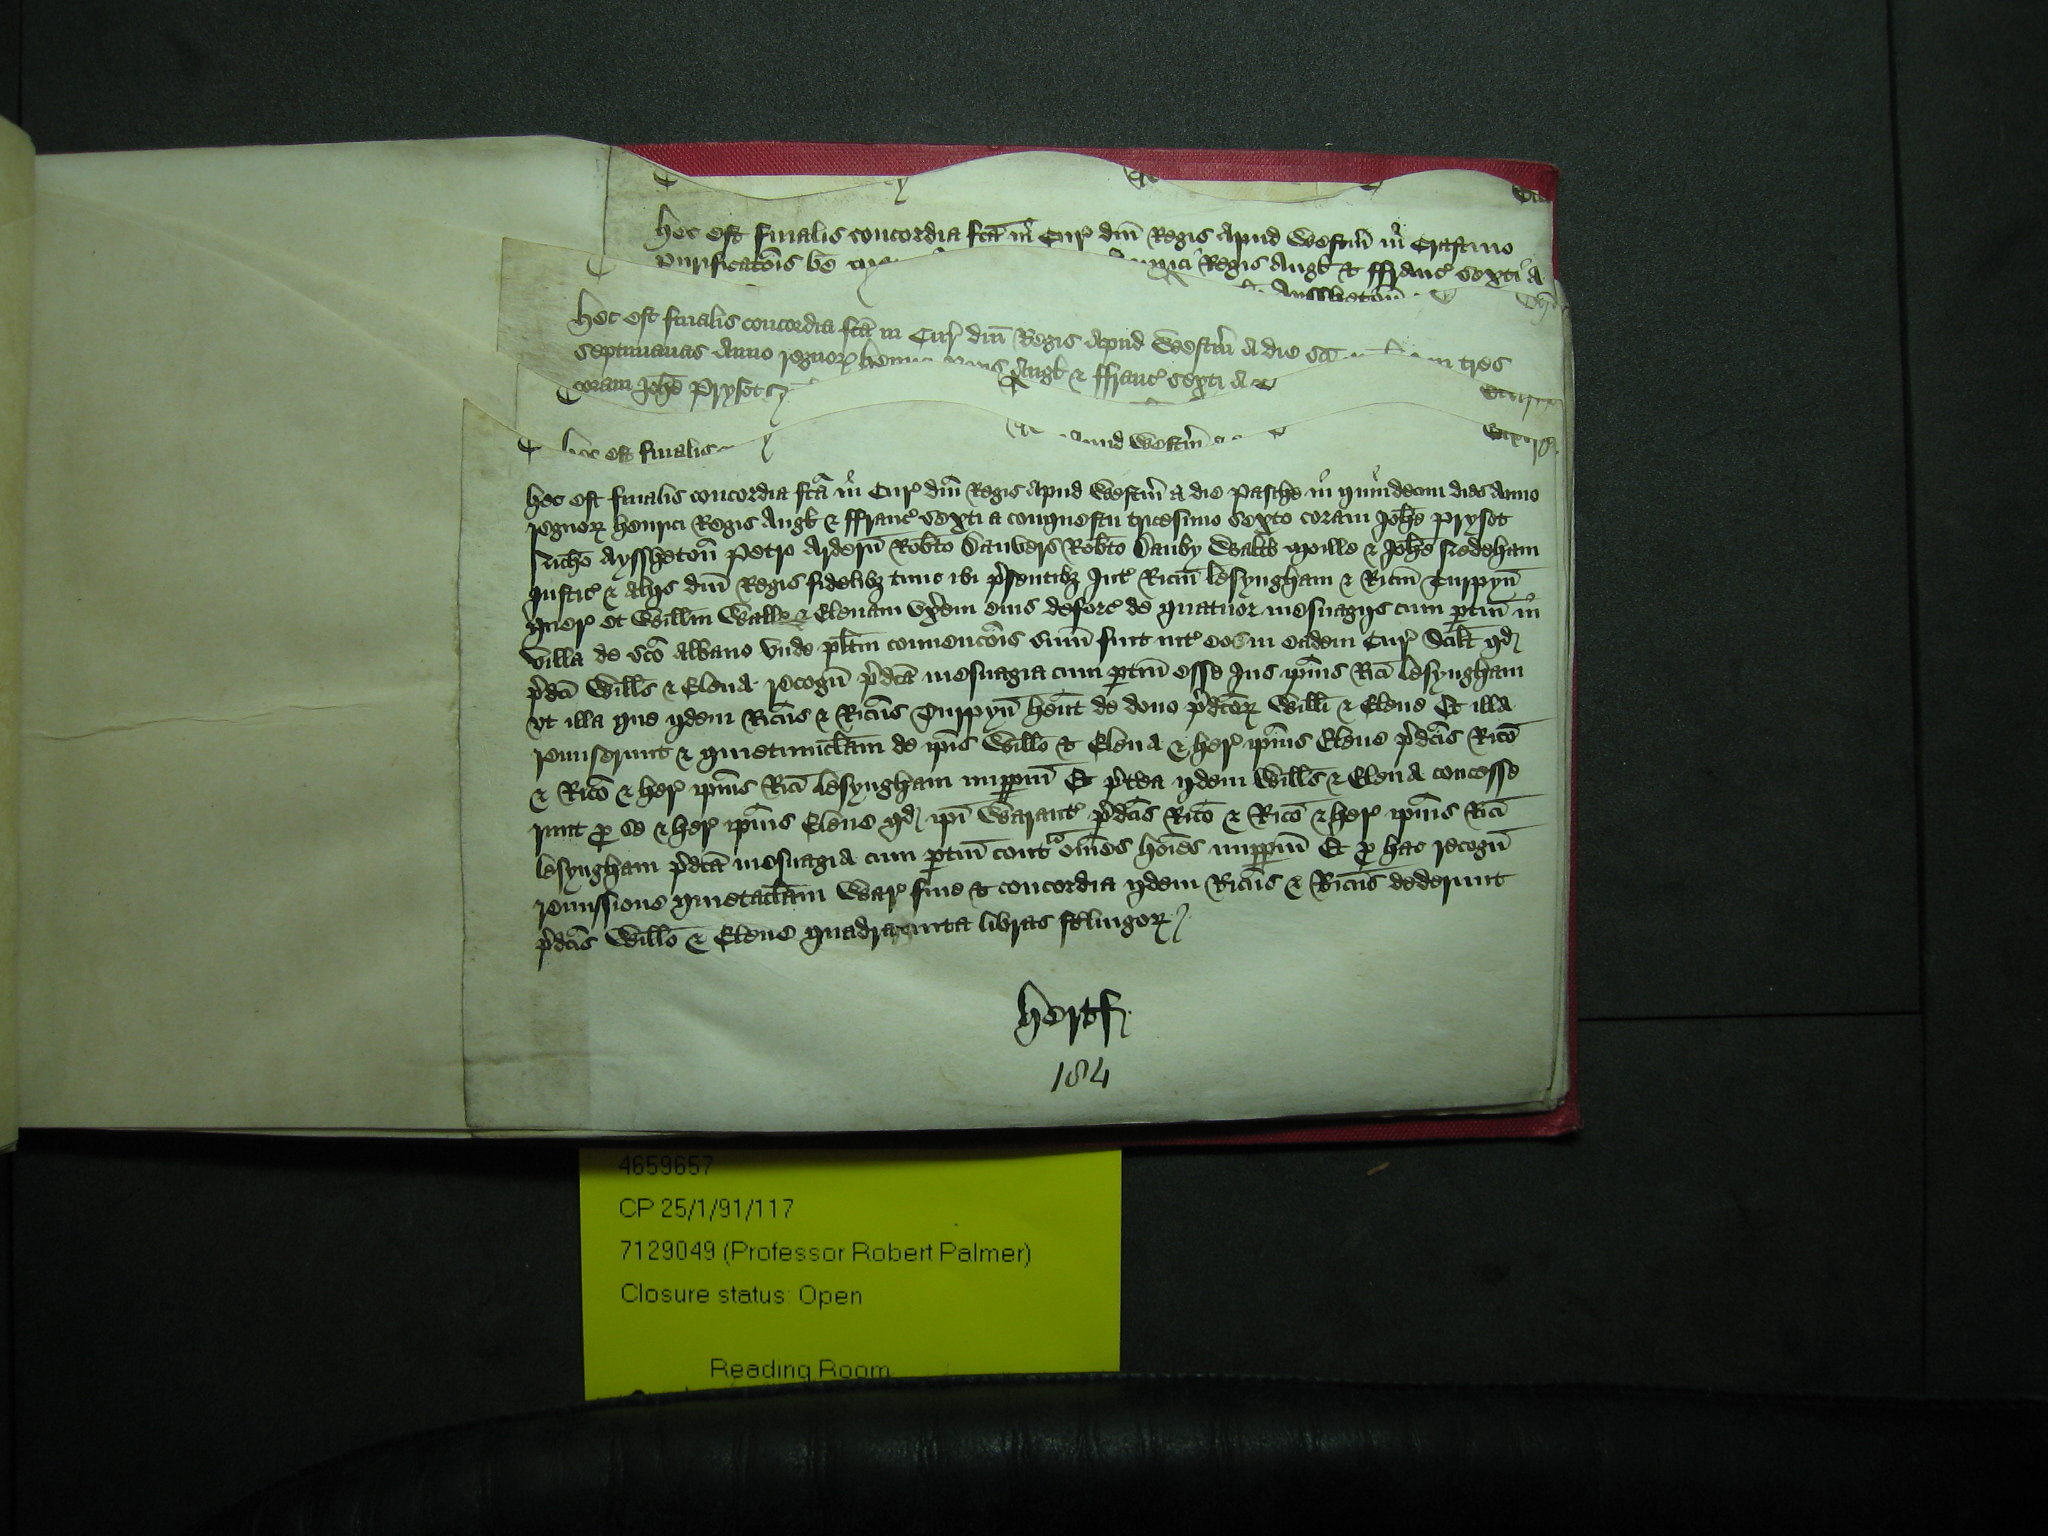 hec est finalis concordia fcā in Cur̛ dn̄i Regis Apud Westm̄ in Crastino
Purificac̄ois bē Regis Angl̄ & ffranc̛ sexti A
Hec est finalis concordia fcā in Cur̛ dn̄i Regis Apud Westm̄ A die tres
septimanas Anno regnoꝝ Angl̄ & ffranc̛ sexti A
coram Joh̄e Prysot
hec est finalis Apud Westm̄
hec est finalis concordia fcā in Cur̛ dn̄i Regis Apud Westm̄ a die Pasche in quindecim dies Anno
regnoꝝ henrici Regis Angl̄ & ffranc̛ sexti a conquestu tricesimo sexto coram Joh̄e Prysot
Nich̄o Aysshetoñ Petro Arderñ Rob̄to Danvers Rob̄to Danby Walt̄o Moille & Joh̄e Nedeham
Justic̛ & Alijs dn̄i Regis fidelibȝ tunc ibi p̄sentibȝ Int̛ Ric̄m lesyngham & Ric̄m Turpyñ
quer̛ et Will̄m Walle & Elenam vx̄em eius deforc̛ de quatuor mesuagijs cum ptin̄ in
villa de sc̄o Albano vnde pl̄itm convenc̄ois sum̄ fuit int̛ eos in eadem Cur̛ Scil̄t qd̛
p̄dc̄i Will̄s & Elena recogn̄ p̄dc̄a mesuagia cum ptin̄ esse Jus ip̄ius Ric̄i lesyngham
vt illa que ijdem Ric̄us & Ric̄us Turpyñ hēnt de dono p̄dc̄oꝝ Will̄i & Elene Et illa
remiserunt & quietumclam̄ de ip̄is Will̄o & Elena & her̛ ip̄ius Elene p̄dc̄is Ric̄o
& Ric̄o & her̛ ip̄ius Ric̄i lesyngham imppm̄ Et p̄tea ijdem Will̄s & Elena concesse
runt ꝓ se & her̛ ip̄ius Elene qd̛ ip̄i Warant̛ p̄dc̄is Ric̄o & Ric̄o & her̛ ip̄ius Ric̄i
lesyngham p̄dc̄a mesuagia cum ptin̄ contᵃ om̄es hōies imppm̄ Et ꝓ hac recogn̄
remissione quietaclam̄ War̛ fine & concordia ijdem Ric̄us & Ric̄us dederunt
p̄dc̄is Will̄o & Elene quadraginta libras st̄lingoꝝ
hertf̛
184
4659657
CP 25/1/91/117
7129049 (Professor Robert Palmer)
Closure status: Open
Reading Room